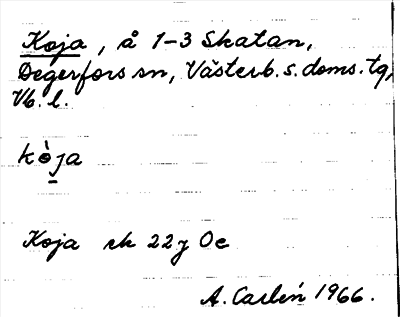 Koja, å 1-3 Skatan,
Degerfors sn, Västerb. s. doms. tg,
Vb. l.
kò̱ja
Koja ek 22 j Oc
A. Carlén 1966.